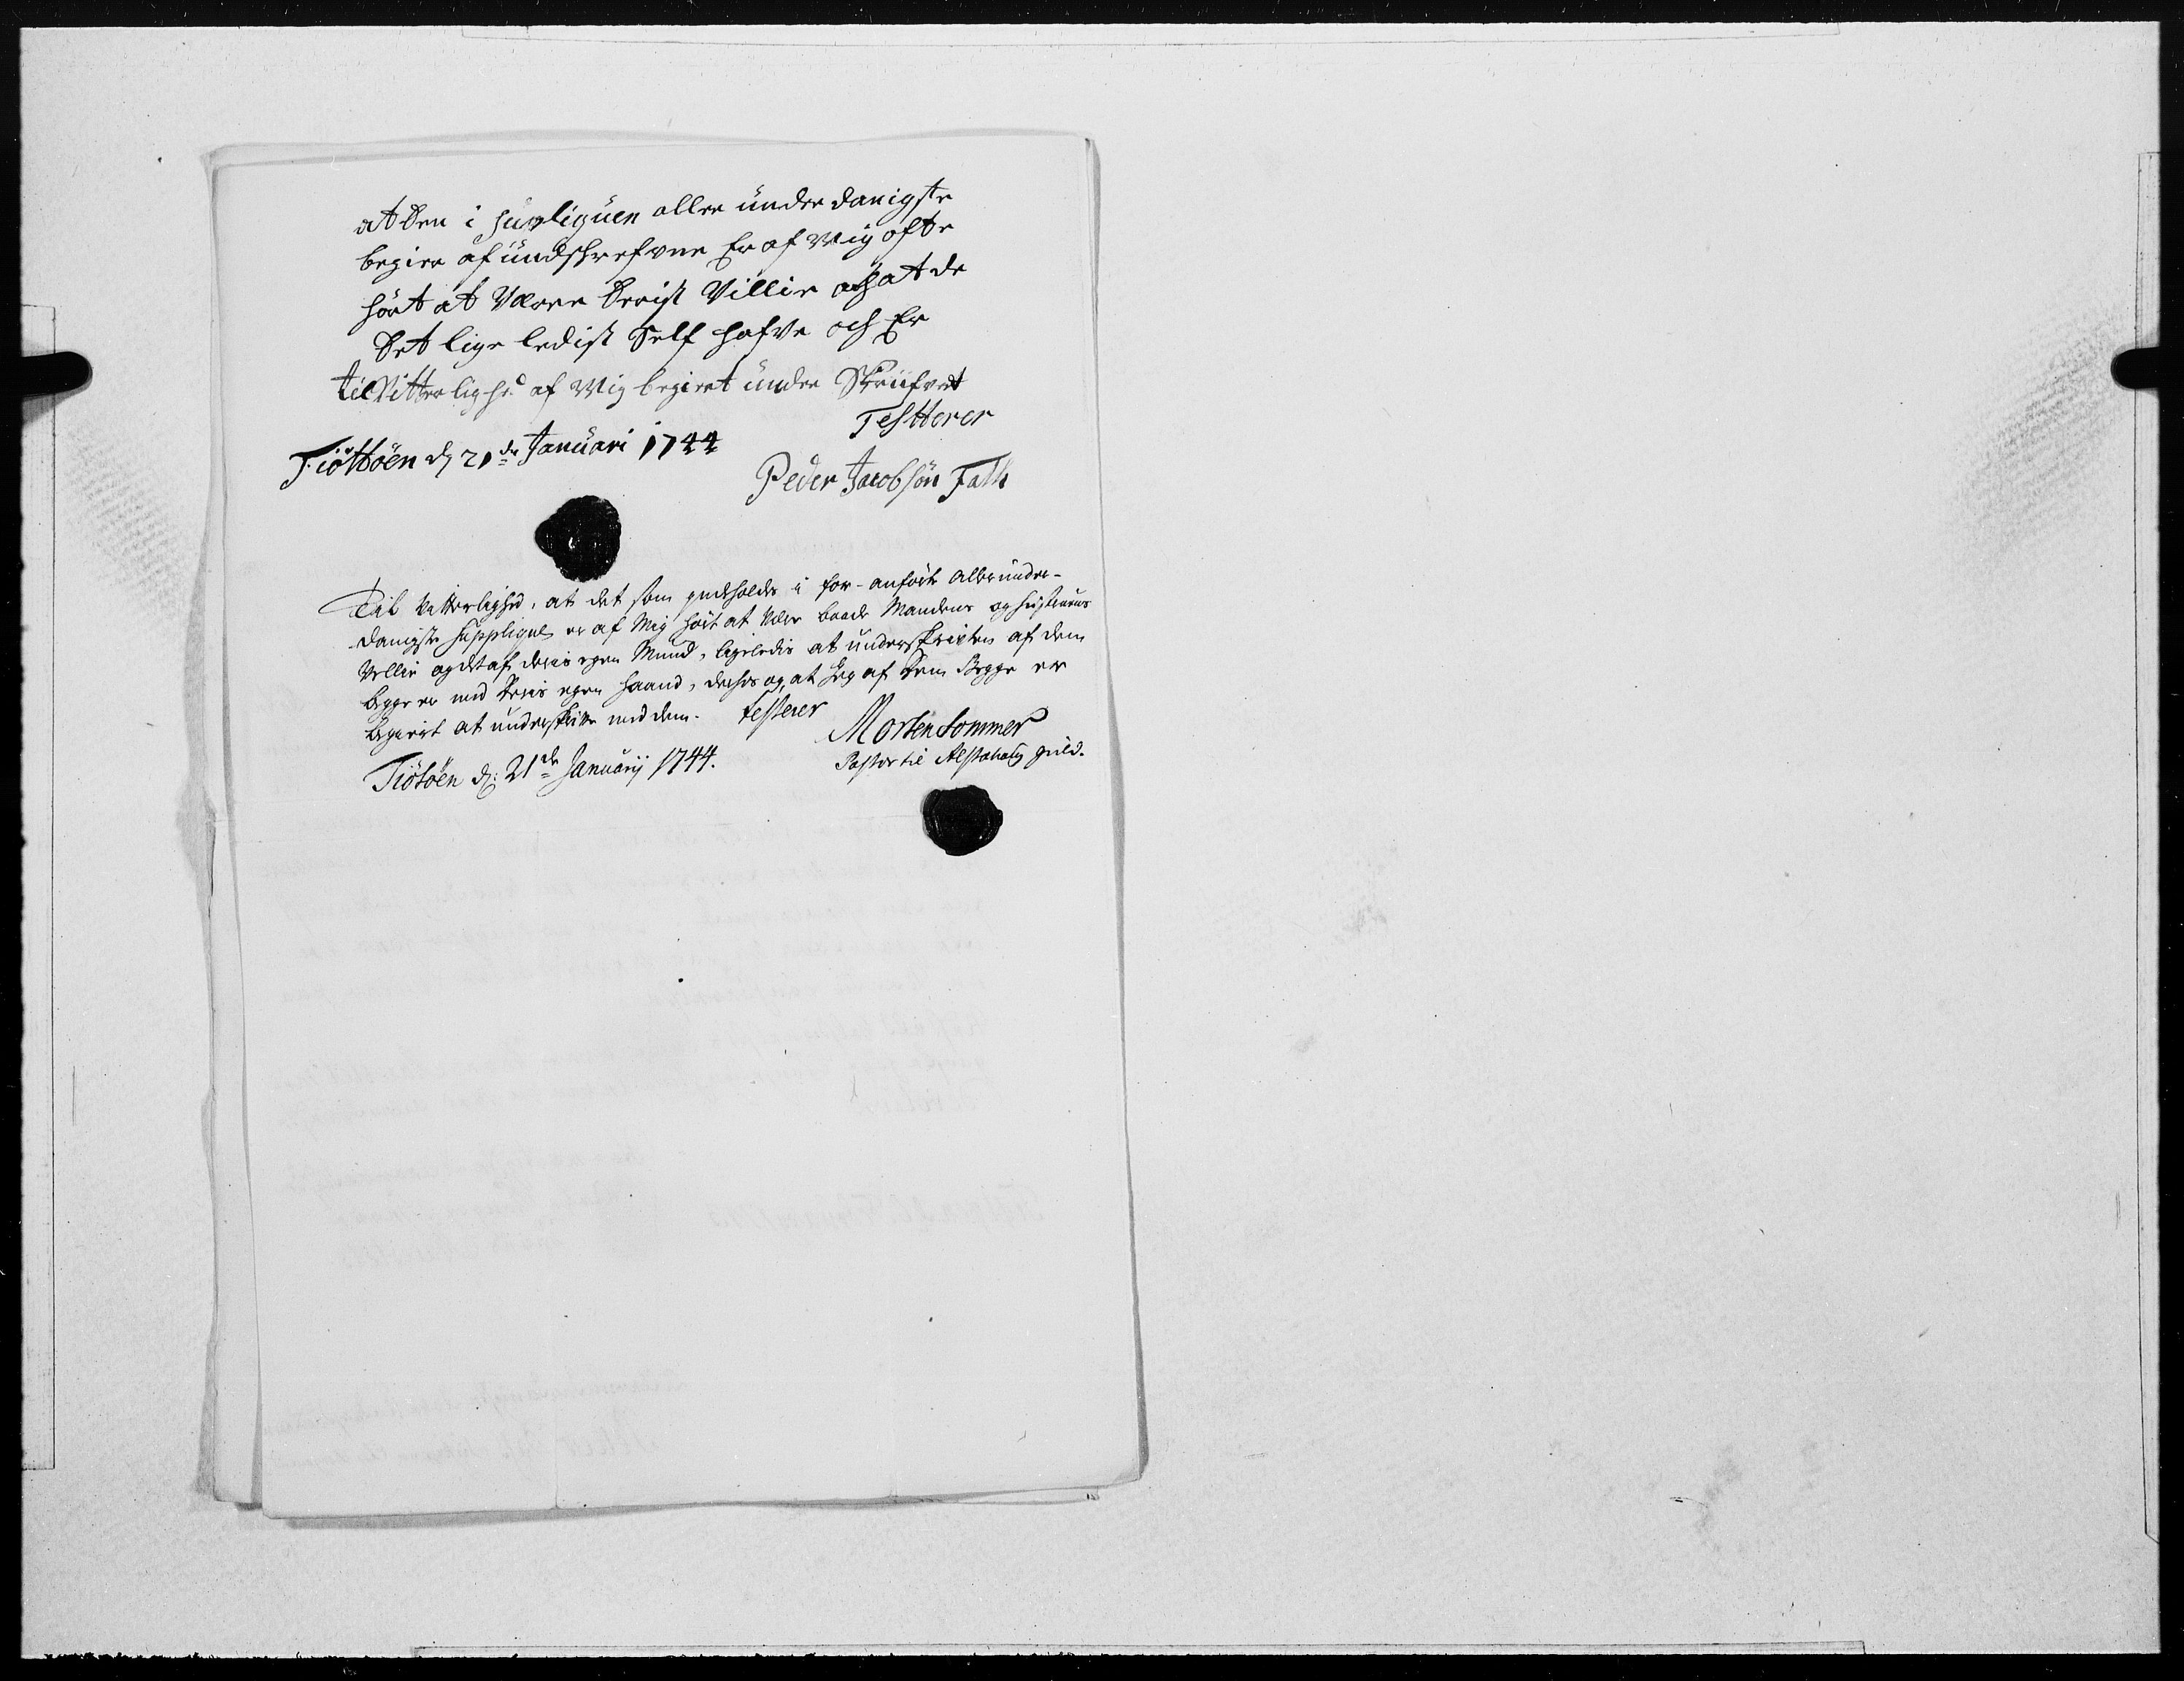 at den i supliquen aller under danigste
begier af undschrefvne Er af Mig ofte
hört at Være Dreist Villie och at de
Det lige ledist Self hafve och Er
til Vitterlighed af Mig begiert under Skrüfvet
Testterer
Tiöttöen d 21de Januari 1744
Peder Jacobsön Falk
Til Vitterlighed, at det som indeholdes i for-anförte allerunder-
danigste Supplique er af Mig hört at være baade Mandens og Hustruens
Villie og det af deris egen Mund, ligeledis at underskriften af dem
begge er med deris egen Haand, desfor og, at Jeg af Dem Begge er
begiert at underskrive med dem. testerer
Morten Sommer
Pastor til Alstahoug Gield.
Tiötöen d: 21de Januarij 1744.